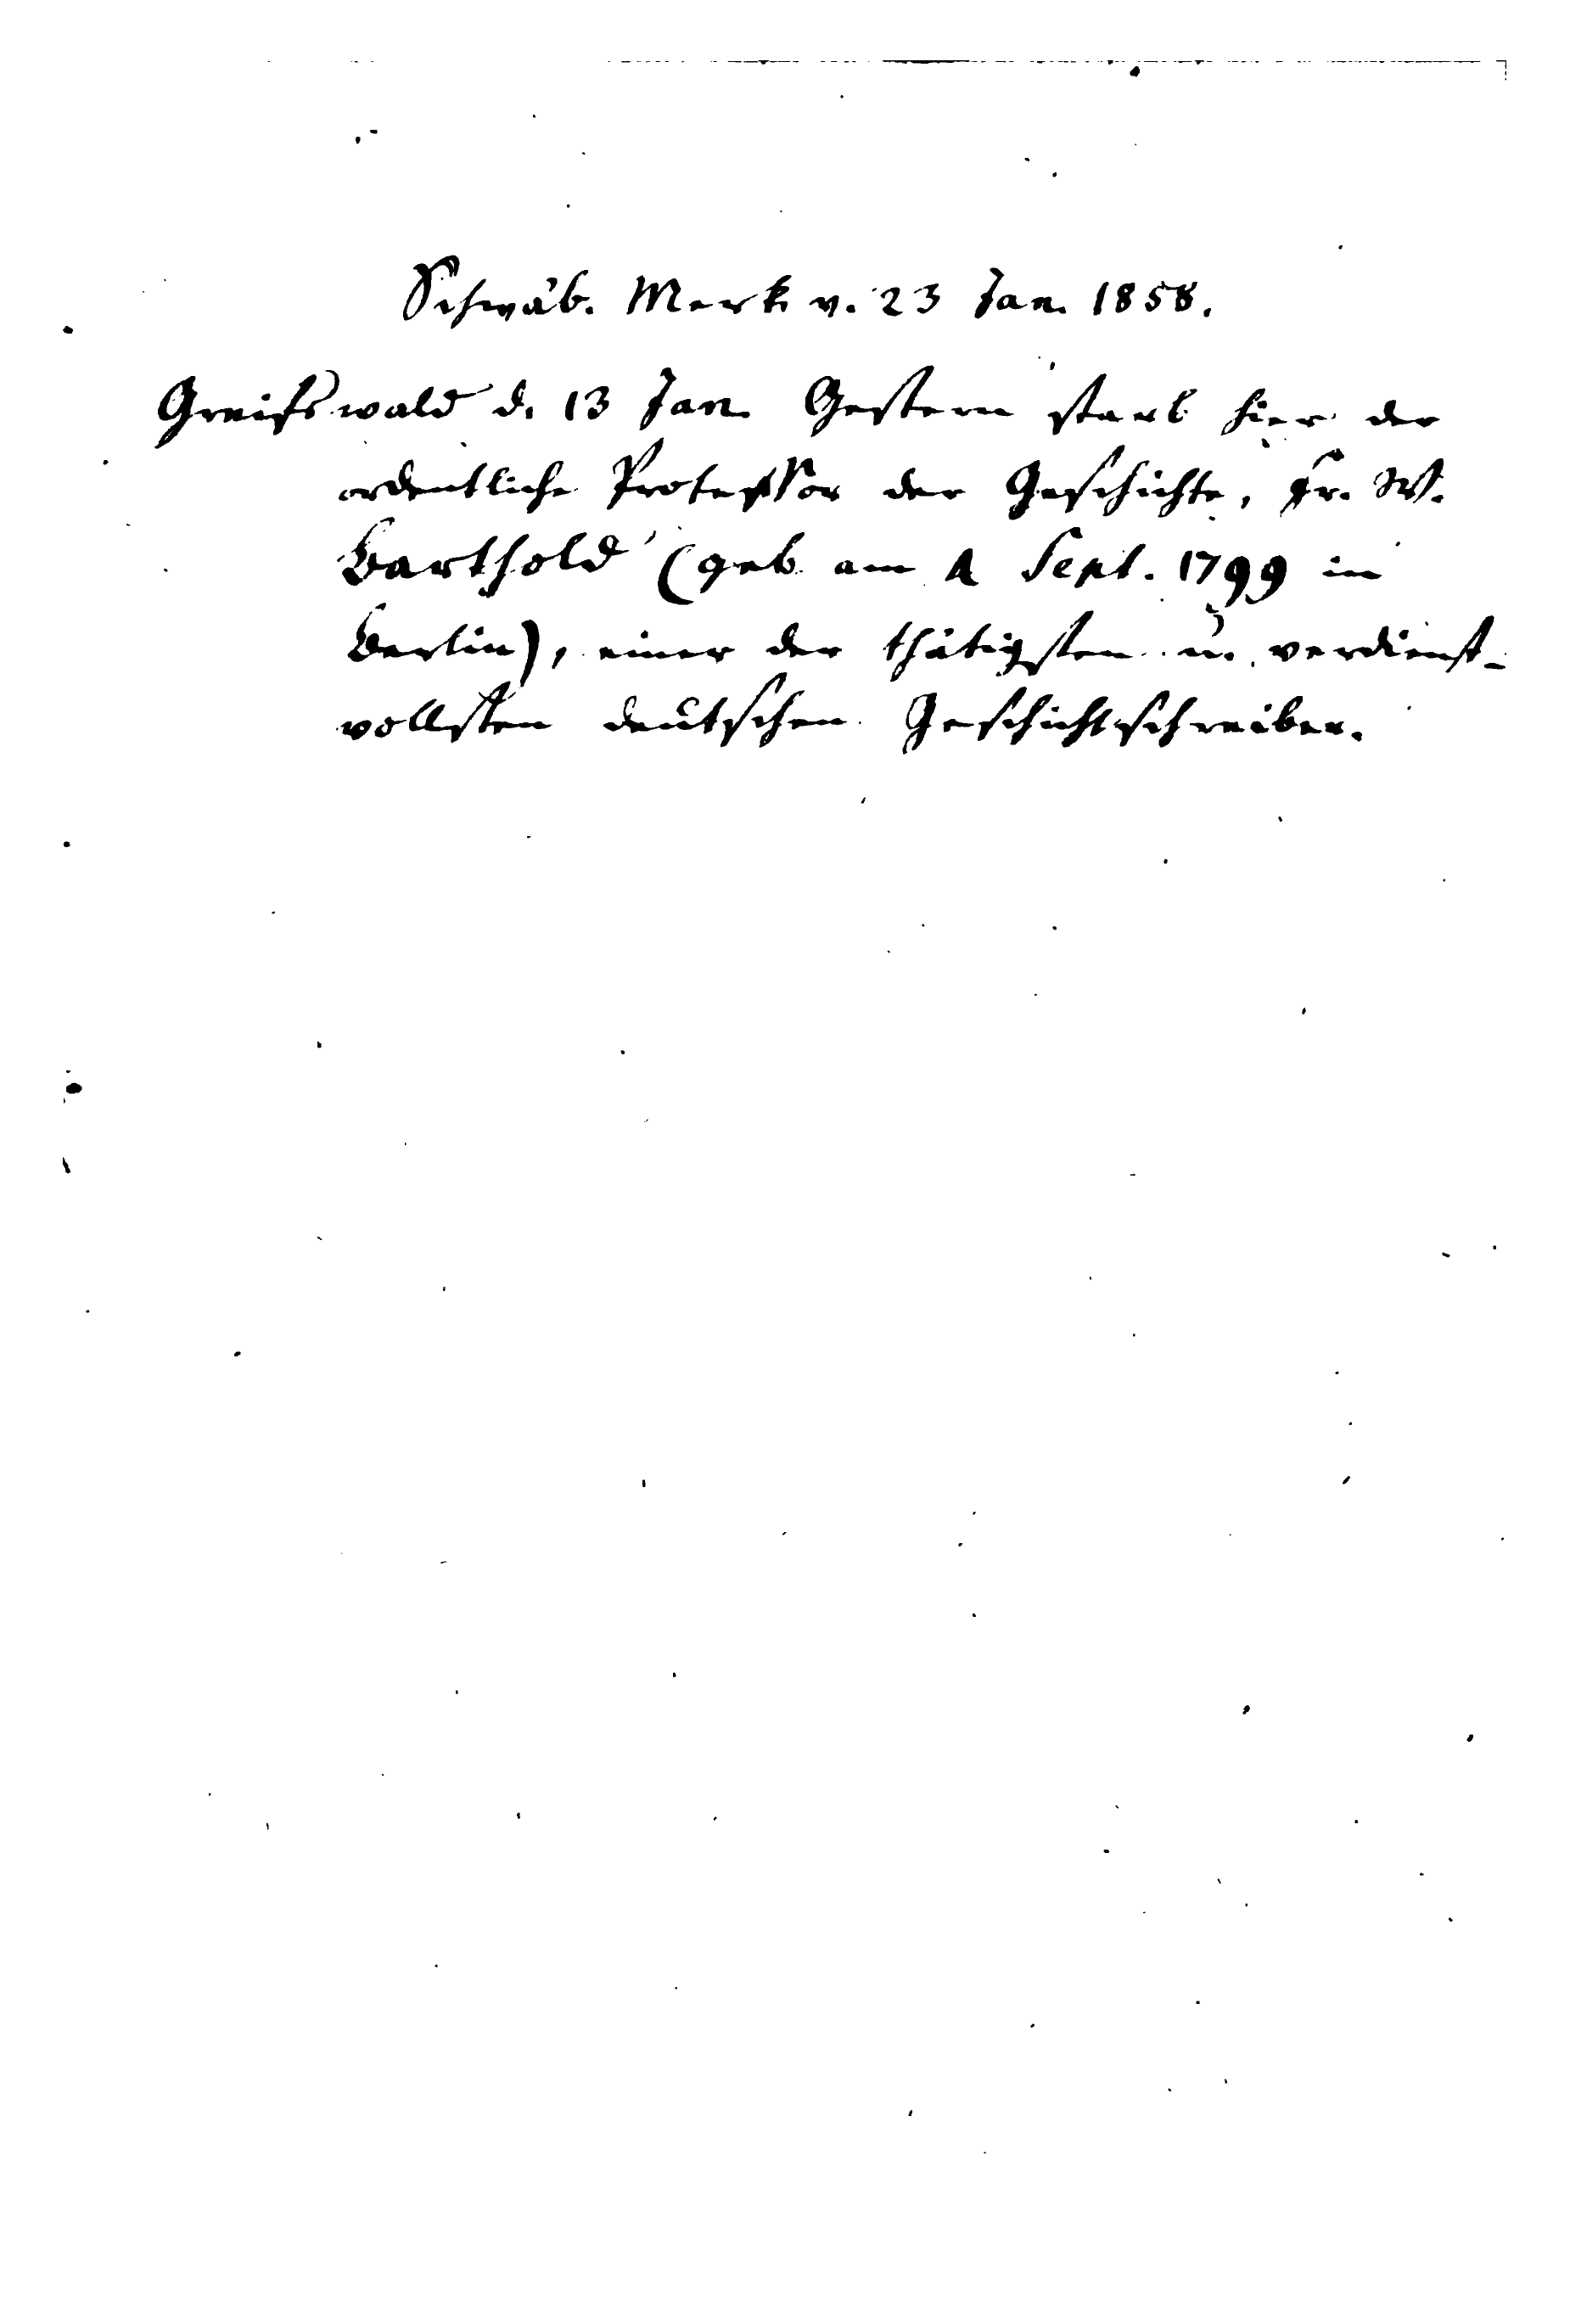 Schwäb. Merk. v. 23 Jan. 1858.
Greifswald d. 13 Jan. Gestern starb hier der
ordentliche Professor der Geschichte, Fr. W.
Barthold (geb. am 4 Sept. 1799 in
Berlin), einer der thätigsten u. verdienst-
vollsten deutschen Geschichtschreiber.